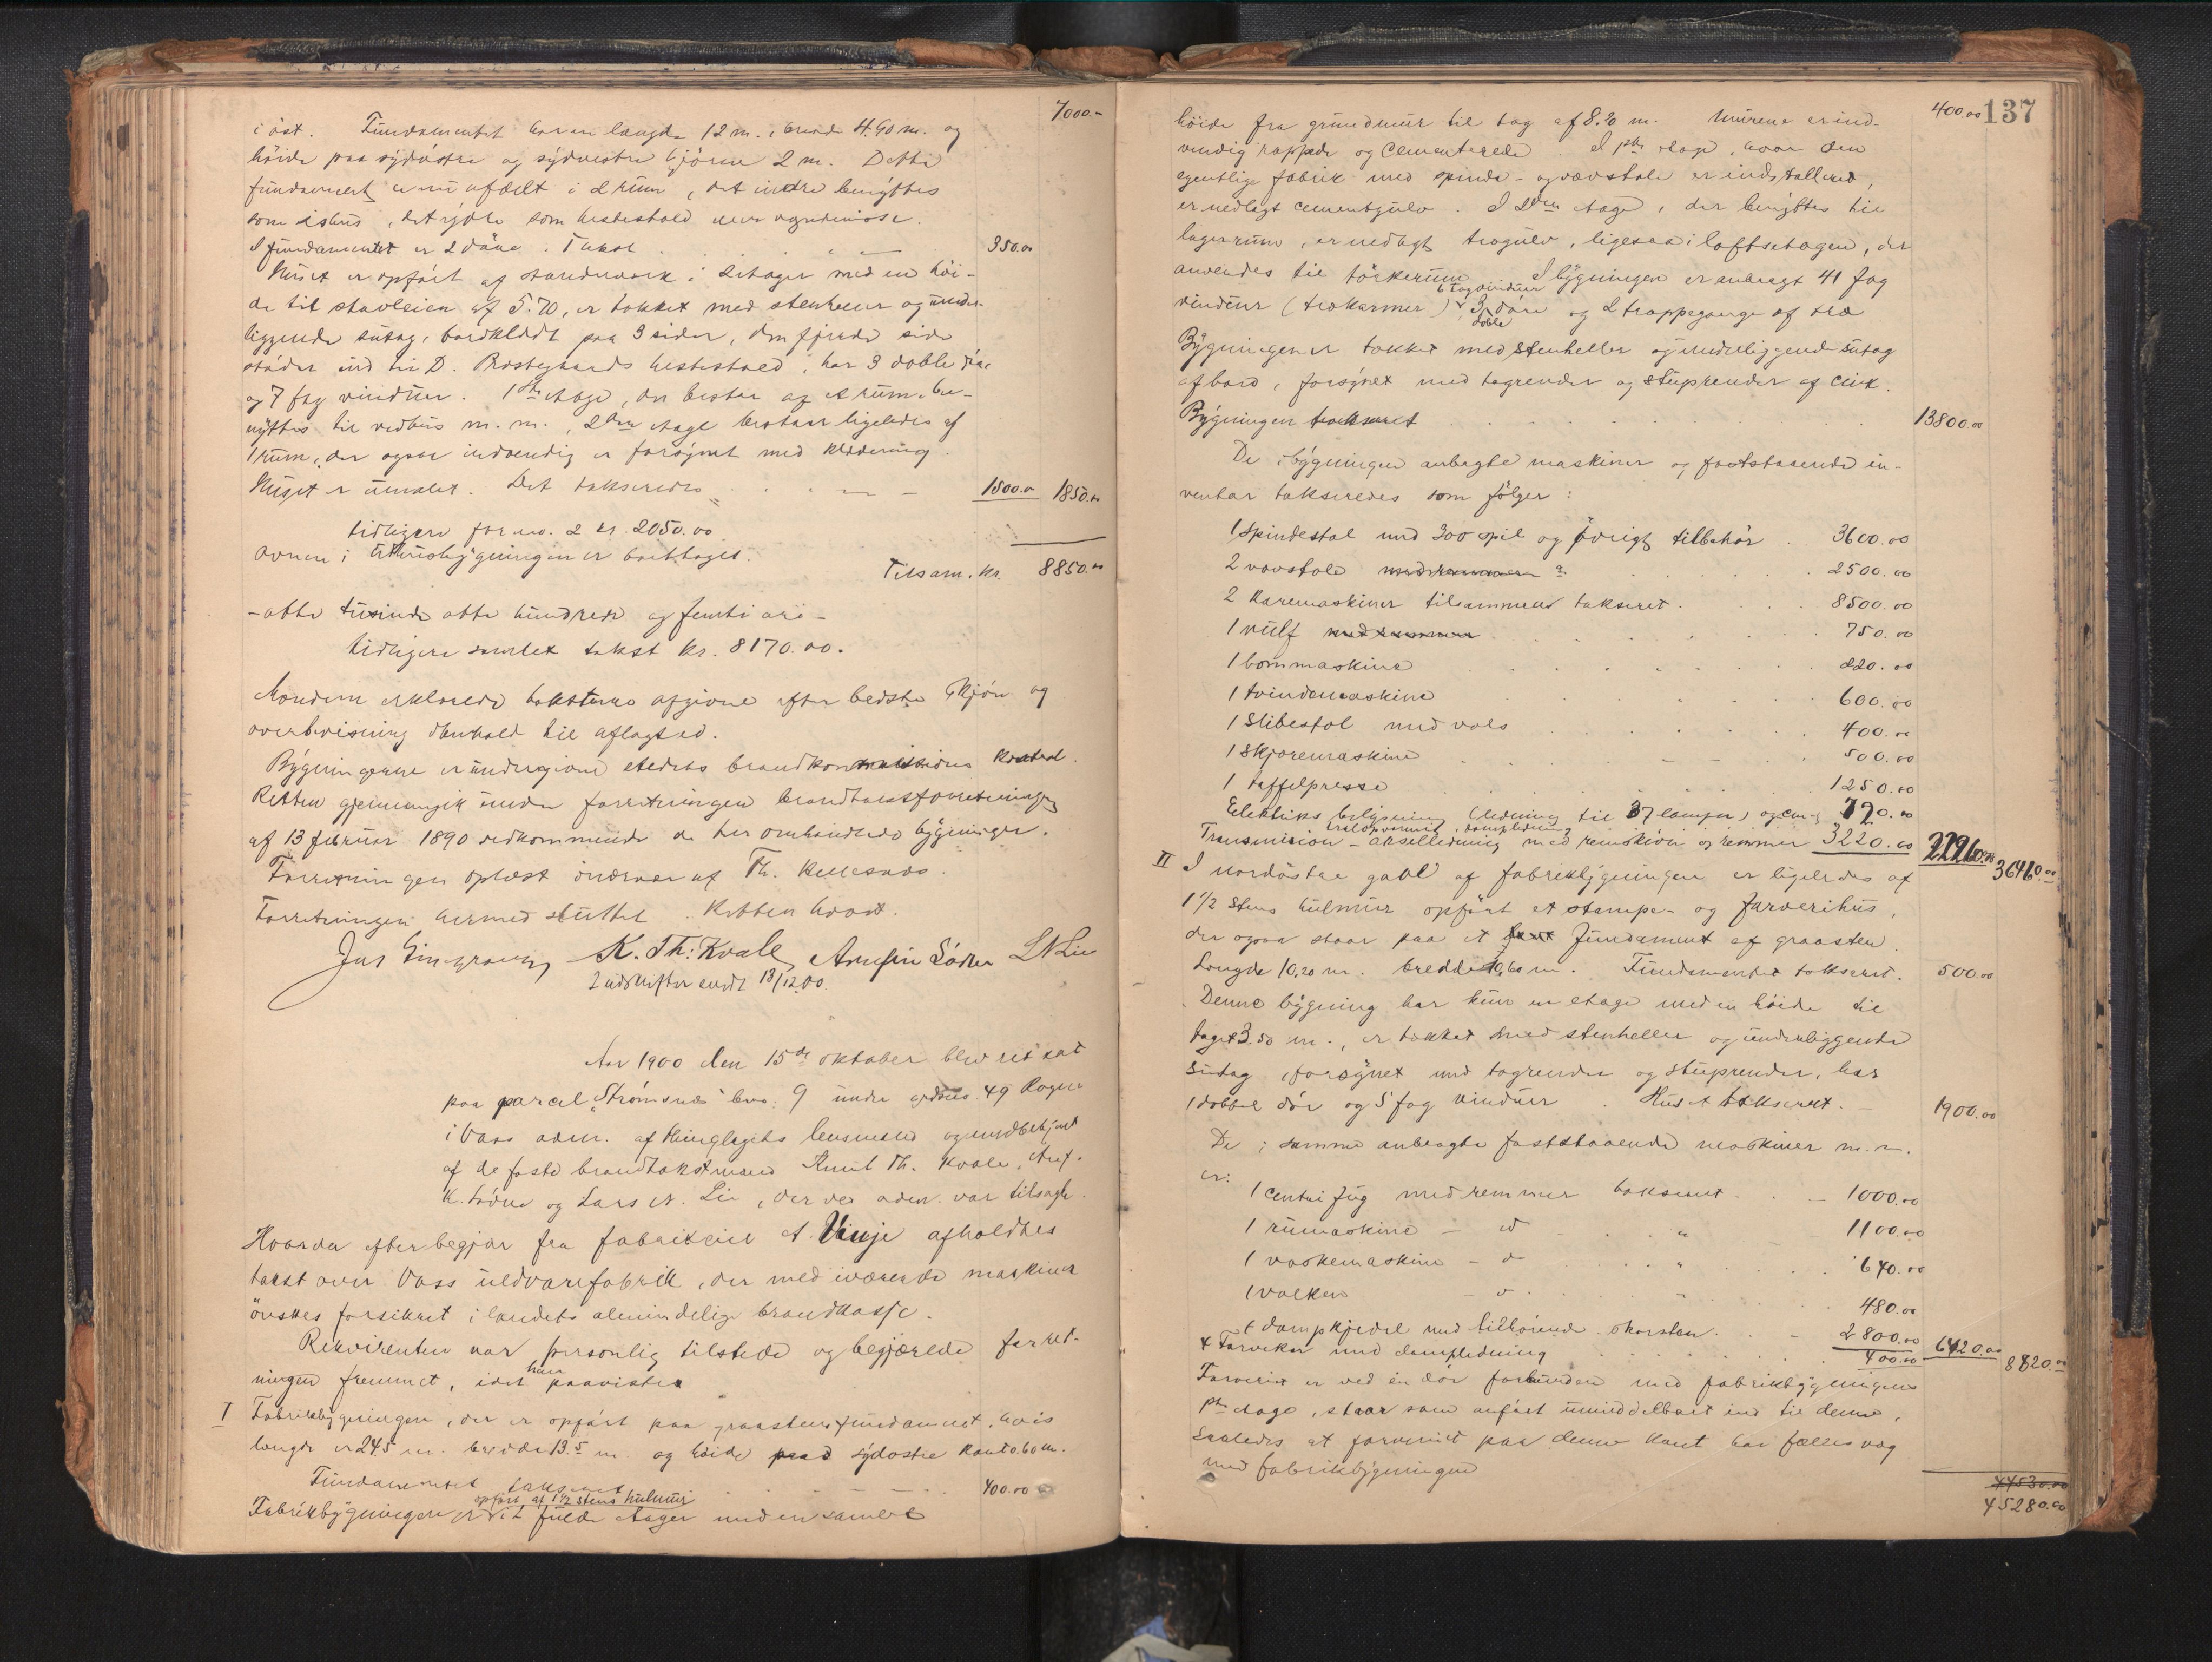 7000.-
i öst. Fundamentet har en længde 12 m., bredde 4.90 m. og
höide paa sydöstre og sydvestre hjörne 2 m. Dette
fundament er nu afdelt i 2 rum, det indre benyttes
som ishus, det ydre som hestestald
I fundamentet er 2 döre. Takst 350.00
Huset er opfört af standerværk i 2 etager med en höi-
de til stavleien af 5.70, er tækket med stenheller og under-
liggende sutag, bordklædt paa 3 sider, den fjerde side
stöder ind til D. Rostegaards hestestald, har 3 doble döre
og 7 fag vinduer. 1ste etage, der bestaar af et rum, be-
nyttes til vedhus m. m., 2den etage bestaar ligeledes af
1 rum, der ogsaa indvendig er forsynet med klædning.
Huset er umalet. Det takseredes 1500.00 1850.00
tidligere for no. 2 kr. 2050.00
Ovnen i uthusbygningen er borttaget.
Tilsam. kr. 8850.00
- otte tusinde otte hundrede og femti kr -
tidligere samlet takst kr. 8170.00.
Mændene erklærede taksterne afgivne efter bedste skjön og
overbevisning i henhold til aflagt ed.
Bygningerne er undergivne stedets brandkommissions kontrol.
Retten gjennemgik under forretningen brandtakstforretningen
af 13 februar 1890 vedkommende de her omhandlede bygninger.
Forretningen oplæst i nærvær af Th.
Forretningen hermed sluttet. Retten hævet.
K. Th: Kvale L N Lie
2 udskrifter sendt 13/12 00.
Aar 1900 den 15de oktober blev ret sat
paa parcel "Strömsnes" bno. 9 under gardsno. 49 Rogne
i Voss adm. af thinglagets lensmand og medbetjent
af de faste brandtakstmænd Knut Th. Kvale, Anf.
K. Södne og Lars N. Lie, der ved adm. var tilsagte.
Hvorda efter begjær fra fabrikeier A. Vinje afholdtes
takst over Voss uldvarefabrik, der med iværende maskiner
önskes forsikret i landets almindelige brandkasse.
Rekvirenten var personlig tilstede og begjærede forret-
ningen fremmet, idet han paaviste:
I Fabrikbygningen, der er opfört paa graastens fundament, hvis
længde er 24.5 m. bredde 13.5 m. og höide paa sydöstre kant 0.60 m.
Fundamentet takseret 400.00
opfört af 1½ stens hulmur
Fabrikbygningen er i 2 fulde etager med en samlet
137
400.00
höide fra grundmur til tag af 8.20 m. Murene er ind-
vendig rappede og cementerede. I 1ste etage, hvor den
egentlige fabrik med spinde- og vævstole er installered,
er nedlagt cementgulv. I 2den etage, der benyttes til
lagerrum, er nedlagt trægulv, ligesaa i loftsetagen, der
anvendes til törkerum. I bygningen er anbragt 41 fag
6 tagvinduer
vinduer (trækarmer) 3 doble döre og 2 trappegange af træ
Bygningen er tækket med stenheller og underliggende sutag
af bord, forsynet med tagrender og stuprender af zink.
Bygningen takseret 13800.00
De i bygningen anbragte maskiner og faststaaende in-
ventar takseredes som fölger:
1 spindestol med 300 spil og övrigt tilbehör 3600.00
2 vævstole med remmer 2500.00
2 karemaskiner tilsammen takseret 8500.00
1 vulf med remmer 750.00
1 bommaskine 220.00
1 tvindemaskine 600.00
1 Slibestol med vals 400.00
1 Skjæremaskine 500.00
1 taffelpresse 1250.00
Elektriks belysning (ledning til 37 lamper) 720.00
Transmision - akselledning med remskiver og remmer 3220.00 22260.00 36460.00
II I nordöstre gavl af fabrikbygningen er ligeledes af
1 1/2 Stens hulmur opfört et stampe- og farverihus,
der ogsaa staar paa et fundament af graasten.
Længde 10,20 m. bredde 10,60 m. Fundamentet takseret. 500.00
Denne bygning har kun en etage med en höide til
taget 3.50 m., er tækket med stenheller og underliggende
sutag, forsynet med tagrender og stuprender, har
1 dobbel dör og 5 fag vinduer. Huset takseret. 1900.00
De i samme anbragte faststaaende maskiner m. m.
er:
1 centrifug med remmer takseret 1000.00
1 rumaskine - d 1100.00
1 vaskemaskine - d 640.00
1 valker - d 480.00
1 dampkjedel med tilhörende skorsten 2800.00
4 farvekar med dampledning 400.00 6420.00 8820.00
Farveriet er ved en dör forbunden med fabrikbygningens
1ste etage, staar som anfört umiddelbart ind til denne,
saaledes at farveriet paa denne kant har fælles væg
med fabrikbygningen
44530.00
45280.00